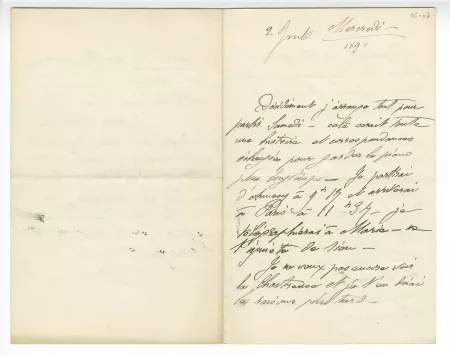 2 Mercredi -
1890
Décidément j'arrange tout pour
partir Samedi - cela serait toute
une histoire et correspondances
échangées pour garder le piano
plus longtemps - Je partirai
d' à 9h 15 et arriverai
à Paris à 11h 35 - je
télégraphierai à Maria - ne
t'inquiète de rien -
Je ne veux pas encore voir
la et je t'en dirai
les raisons plus tard -